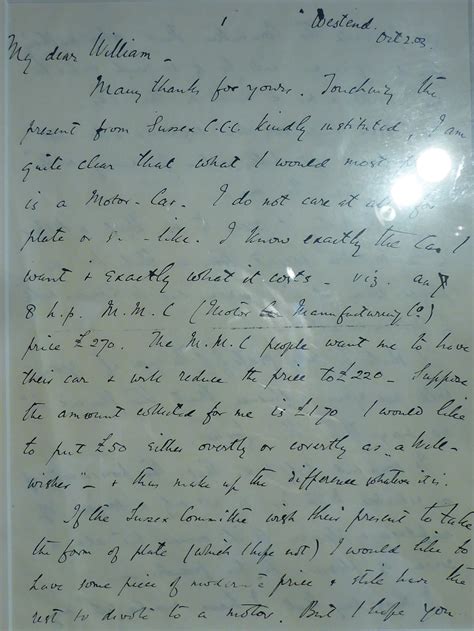 1
Westend.
Oct 2. 03.
My dear William -
Many thanks for yours. Touching the
present from Sussex C.C.C. kindly instituted, I am
quite clear that what I would most
is a Motor-Car. I do not care at all for
plate or - like. I know exactly the Car I
want & exactly what it costs - viz. an
8 h.p. M.M.C (Motor Manufacturing Co)
price £270. The M.M.C people want me to have
their car & will reduce the price to £220 - Suppose
the amount collected for me is £170 I would like
to put £50 either overtly or covertly as "a Well-
wisher" - & thus make up the difference whatever it is.
If the Sussex Committee wish their present to take
the form of plate (which I hope not) I would like to
have some piece of moderate price & still have the
rest to devote to a motor. But I hope you